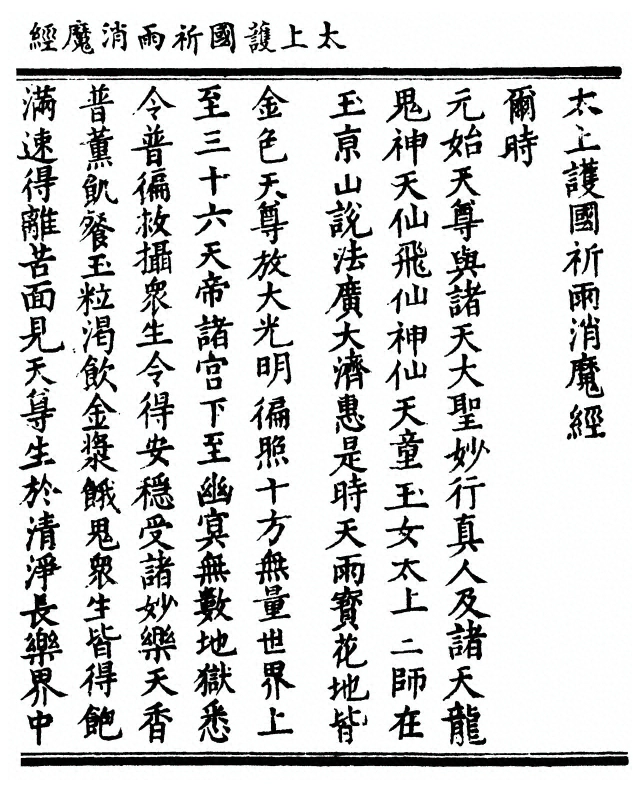 太上護國祈雨消魔經
太上護國祈雨消魔經
爾時
元始天尊與諸天大聖妙行真人及諸天龍
鬼神天仙飛仙神仙天童玉女太上二師在
玉京山說法廣大濟惠是時天雨寳花地皆
金色天尊放大光明徧照十方無量世界上
至三十六天帝諸宫下至幽冥無數地獄悉
令普徧救攝衆生令得安穩受諸妙樂天香
普薰飢飡玉粒渴飲金漿餓鬼衆生皆得飽
滿速得離苦面見天尊生於清淨長樂界中